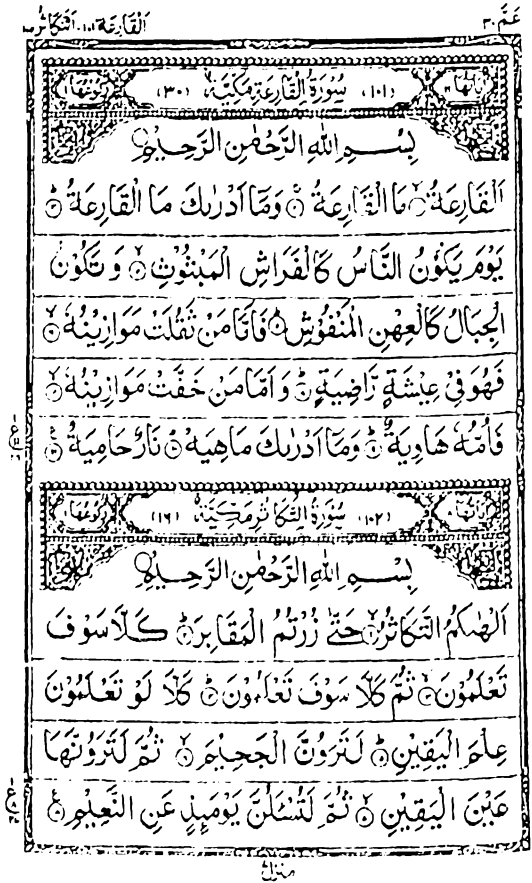 عَمَّ ٣٠ اَلْقَارِعَة ١٠١، اَلتَّكَاثُر
اٰيَاتُهَا (١٠١) سُوْرَةُ الْقَارِعَةِ مَكِّيَّةٌ (٣٠) رُكُوْعُهَا
بِسْمِ اللّٰهِ الرَّحْمٰنِ الرَّحِيْمِ
اَلْقَارِعَةُ ۙ مَا الْقَارِعَةُ ۚ وَمَآ اَدْرٰىكَ مَا الْقَارِعَةُ ؕ
يَوْمَ يَكُوْنُ النَّاسُ كَالْفَرَاشِ الْمَبْثُوْثِ ۙ وَتَكُوْنُ
الْجِبَالُ كَالْعِهْنِ الْمَنْفُوْشِ ؕ فَاَمَّا مَنْ ثَقُلَتْ مَوَازِيْنُهٗ ۙ
فَهُوَ فِيْ عِيْشَةٍ رَّاضِيَةٍ ؕ وَاَمَّا مَنْ خَفَّتْ مَوَازِيْنُهٗ ۙ
فَاُمُّهٗ هَاوِيَةٌ ؕ وَمَآ اَدْرٰىكَ مَاهِيَهْ ؕ نَارٌ حَامِيَةٌ ۧ
اٰيَاتُهَا (١٠٢) سُوْرَةُ التَّكَاثُرِ مَكِّيَّةٌ (١٦) رُكُوْعُهَا
بِسْمِ اللّٰهِ الرَّحْمٰنِ الرَّحِيْمِ
اَلْهٰىكُمُ التَّكَاثُرُ ۙ حَتّٰى زُرْتُمُ الْمَقَابِرَ ؕ كَلَّا سَوْفَ
تَعْلَمُوْنَ ۙ ثُمَّ كَلَّا سَوْفَ تَعْلَمُوْنَ ؕ كَلَّا لَوْ تَعْلَمُوْنَ
عِلْمَ الْيَقِيْنِ ؕ لَتَرَوُنَّ الْجَحِيْمَ ۙ ثُمَّ لَتَرَوُنَّهَا
عَيْنَ الْيَقِيْنِ ۙ ثُمَّ لَتُسْـَٔلُنَّ يَوْمَئِذٍ عَنِ النَّعِيْمِ ۧ
منزل